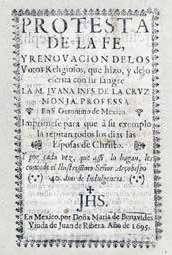 PROTESTA
DE LA FE,
Y RENOVACION DE LOS
Votos Religiosos, que hizo, y dejo
escrita con su sangre
LA M. JVANA INES DE LA CRVZ
MONJA PROFESSA
En S. Geronimo de Mexico.
Imprimese para que à su exemplo
la repitan todos los dias las
Esposas de Christo.
Y por cada vez, que assi lo hagan, les
concede el Illustrissimo Señor Arçobispo
40. dias de Indulgencia.
JHS.
En Mexico, por Doña Maria de Benavides
Viuda de Juan de Ribera. Año de 1695.